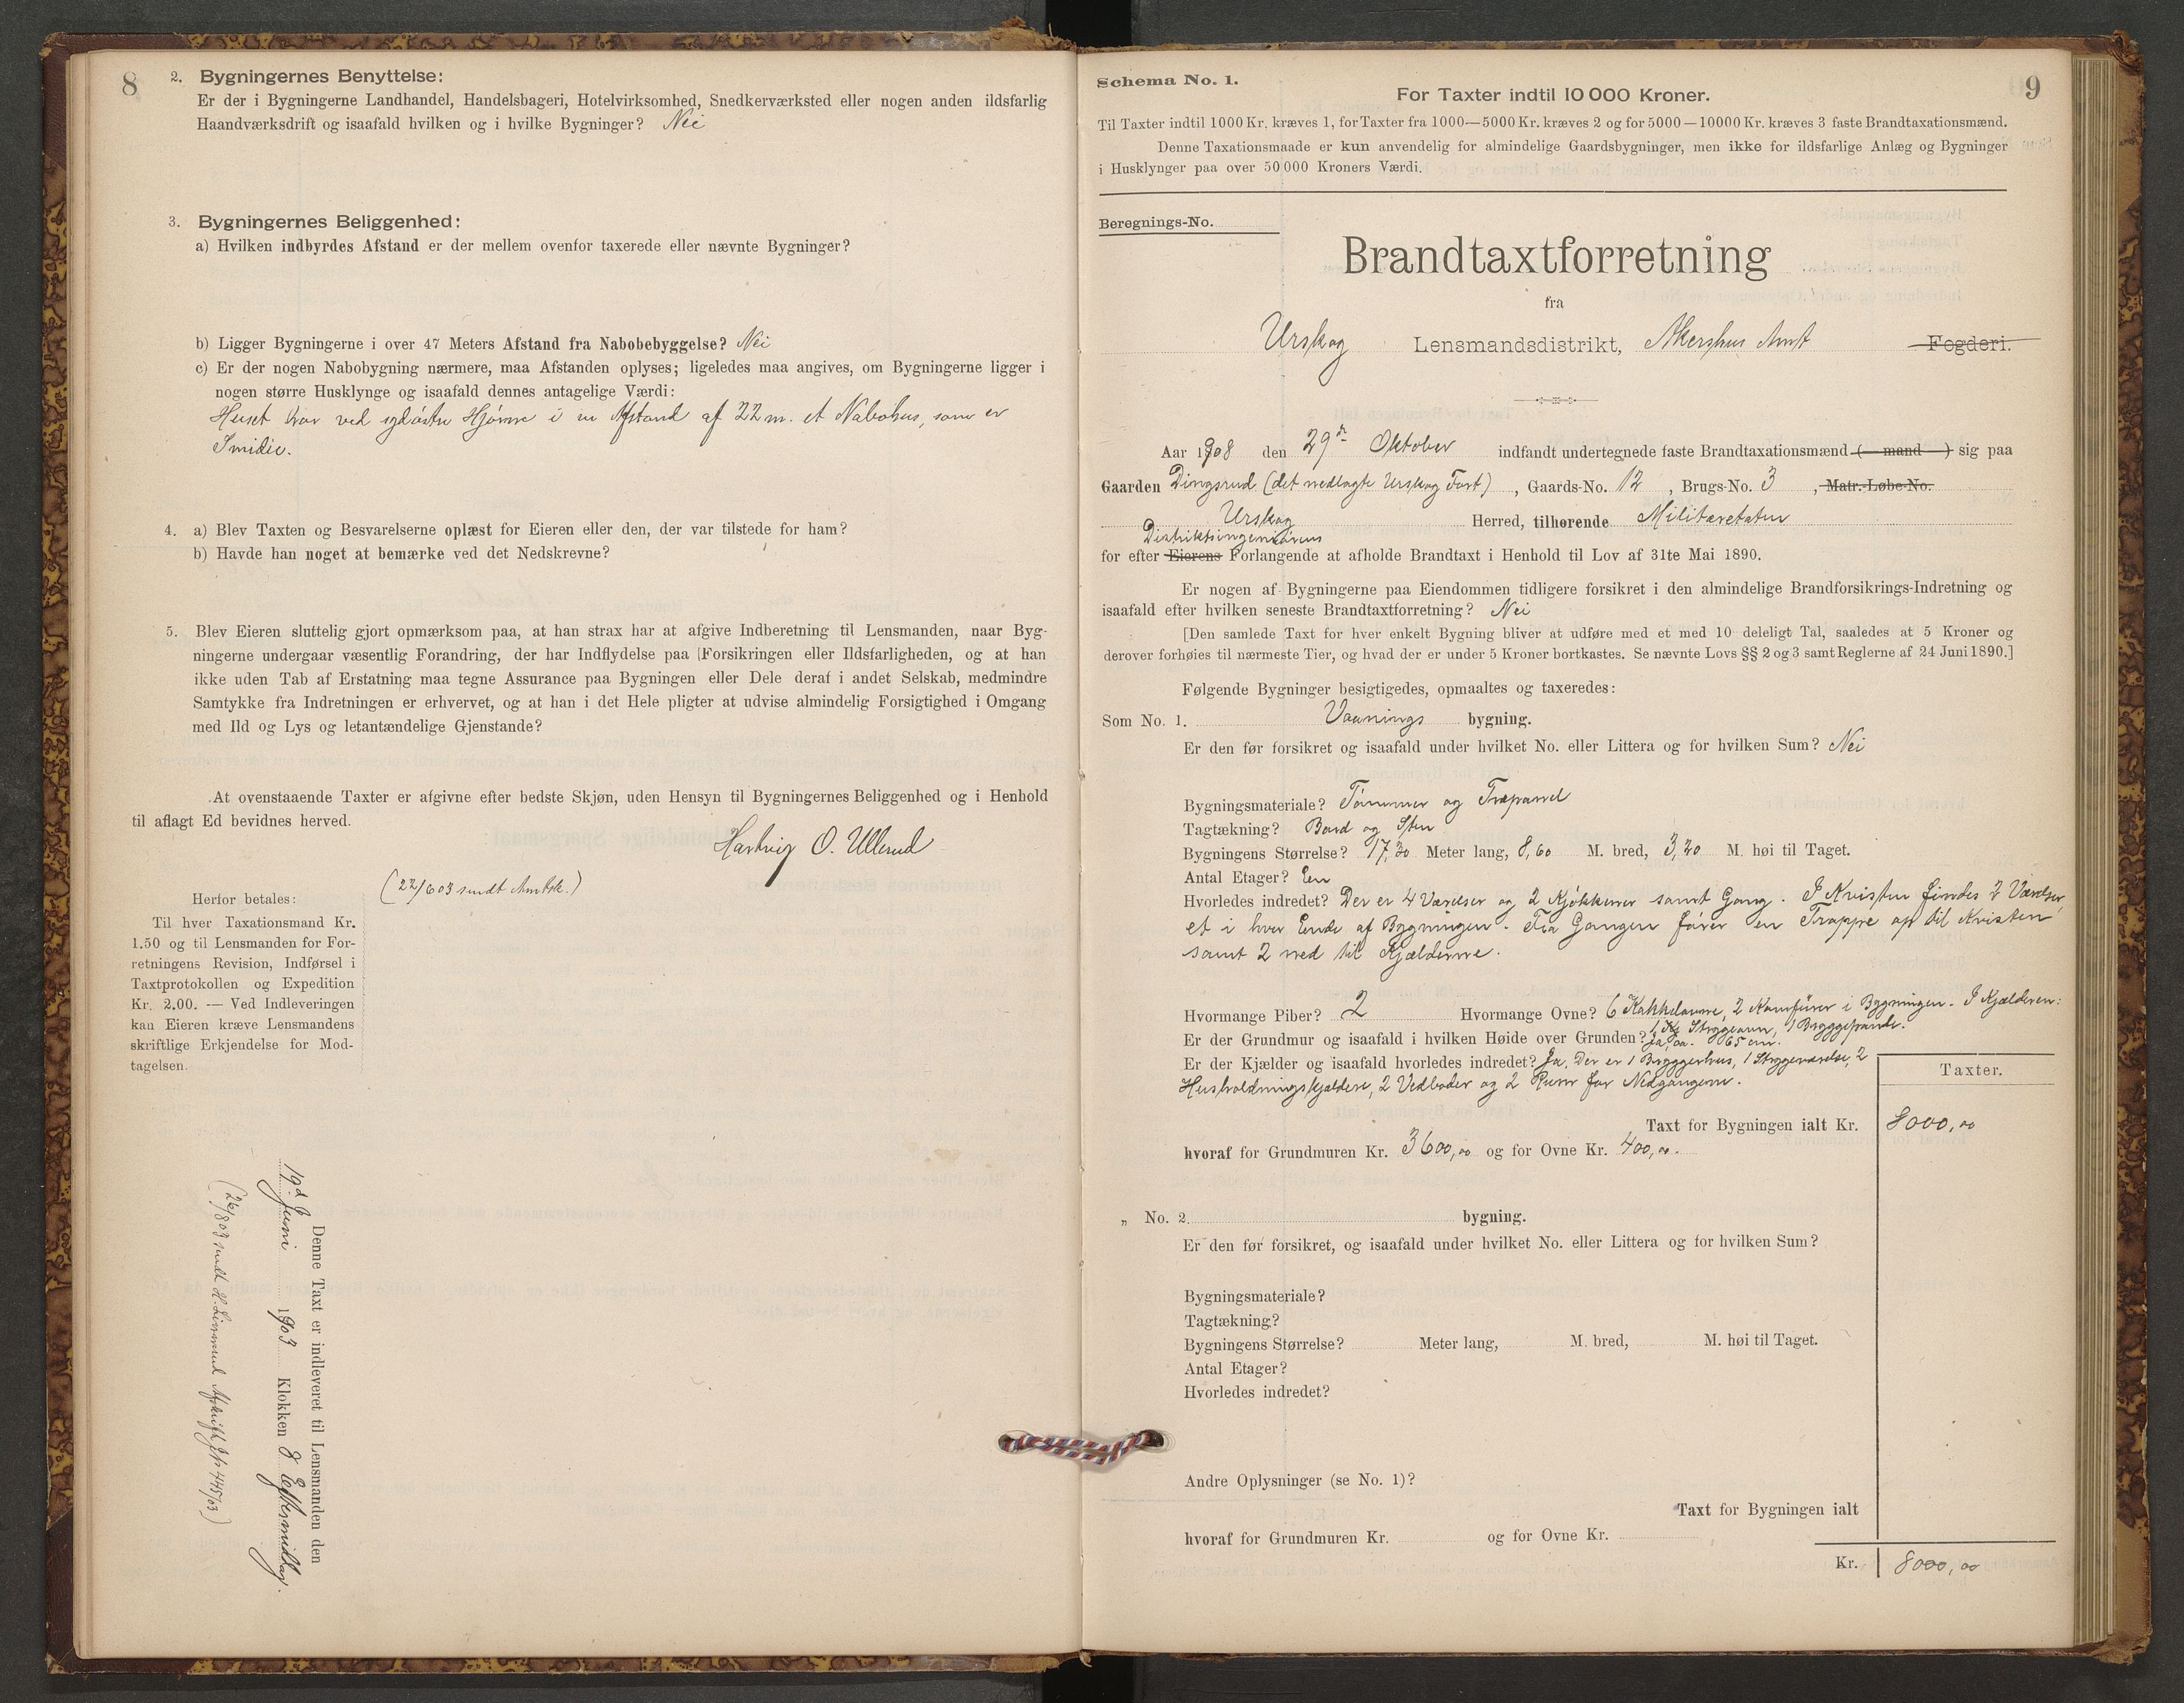 8
2. Bygningernes Benyttelse:
Er der i Bygningerne Landhandel, Handelsbageri, Hotelvirksomhed, Snedkerværksted eller nogen anden ildsfarlig
Haandværksdrift og isaafald hvilken og i hvilke Bygninger? Nei
3. Bygningernes Beliggenhed:
a) Hvilken indbyrdes Afstand er der mellem ovenfor taxerede eller nævnte Bygninger?
b) Ligger Bygningerne i over 47 Meters Afstand fra Nabobebyggelse? Nei
c) Er der nogen Nabobygning nærmere, maa Afstanden oplyses; ligeledes maa angives, om Bygningerne ligger i
nogen større Husklynge og isaafald dennes antagelige Værdi:
Huset har ved sydöstre Hjörne i en Afstand af 22 m. et Nabohus, som er
Smidie.
4. a) Blev Taxten og Besvarelserne oplæst for Eieren eller den, der var tilstede for ham?
b) Havde han noget at bemærke ved det Nedskrevne?
5. Blev Eieren sluttelig gjort opmærksom paa, at han strax har at afgive Indberetning til Lensmanden, naar Byg-
ningerne undergaar væsentlig Forandring, der har Indflydelse paa Forsikringen eller Ildsfarligheden, og at han
ikke uden Tab af Erstatning maa tegne Assurance paa Bygningen eller Dele deraf i andet Selskab, medmindre
Samtykke fra Indretningen er erhvervet, og at han i det Hele pligter at udvise almindelig Forsigtighed i Omgang
med Ild og Lys og letantændelige Gjenstande?
At ovenstaaende Taxter er afgivne efter bedste Skjøn, uden Hensyn til Bygningernes Beliggenhed og i Henhold
til aflagt Ed bevidnes herved.
Hartvig O. Ullerud
(22/6 03 sendt Amtsk.)
Herfor betales:
Til hver Taxationsmand Kr.
1.50 og til Lensmanden for For-
retningens Revision, Indførsel i
Taxtprotokollen og Expedition
Kr. 2.00. — Ved Indleveringen
kan Eieren kræve Lensmandens
skriftlige Erkjendelse for Mod-
tagelsen.
Denne Taxt er indleveret til Lensmanden den
19d Juni 1903 Klokken 8 Eftermiddag.
(26/8 03 sendt H. Afskrift 445/03)
9
Schema No. 1.
For Taxter indtil 10 000 Kroner.
Til Taxter indtil 1000 Kr. kræves 1, for Taxter fra 1000—5000 Kr. kræves 2 og for 5000—10000 Kr. kræves 3 faste Brandtaxationsmænd.
Denne Taxationsmaade er kun anvendelig for almindelige Gaardsbygninger, men ikke for ildsfarlige Anlæg og Bygninger
i Husklynger paa over 50 000 Kroners Værdi.
Beregnings-No.
Brandtaxtforretning
fra
Urskog Lensmandsdistrikt, Akershus Amt Fogderi.
Aar 1908 den 29de Oktober indfandt undertegnede faste Brandtaxationsmænd (— mand —) sig paa
Gaarden Dingsrud (det nedlagte Urskog Fort), Gaards-No. 12, Brugs-No. 3, Matr.-Løbe-No.
Urskog Herred, tilhørende Militæretaten
Distriktsingeniörens
for efter Eierens Forlangende at afholde Brandtaxt i Henhold til Lov af 31te Mai 1890.
Er nogen af Bygningerne paa Eiendommen tidligere forsikret i den almindelige Brandforsikrings-Indretning og
isaafald efter hvilken seneste Brandtaxtforretning? Nei
[Den samlede Taxt for hver enkelt Bygning bliver at udføre med et med 10 deleligt Tal, saaledes at 5 Kroner og
derover forhøies til nærmeste Tier, og hvad der er under 5 Kroner bortkastes. Se nævnte Lovs §§ 2 og 3 samt Reglerne af 24 Juni 1890.]
Følgende Bygninger besigtigedes, opmaaltes og taxeredes:
Som No. 1. Vaanings bygning.
Er den før forsikret og isaafald under hvilket No. eller Littera og for hvilken Sum? Nei
Bygningsmateriale? Tömmer og Træpanel
Tagtækning? Bord og Sten
Bygningens Størrelse? 17,30 Meter lang, 8,60 M. bred, 3,20 M. høi til Taget.
Antal Etager? Een
Hvorledes indredet? Der er 4 Værelser og 2 Kjökkener samt Gang. I Kvisten findes 2 Værelser,
et i hver Ende af Bygningen. Fra Gangen förer en Trappe op til Kvisten
samt 2 ned til Kjælderne.
Hvormange Piber? 2 Hvormange Ovne? 6 Kakkelovne, 2 Komfürer i Bygningen. I Kjælderen:
1 Strygeovn, 1 Bryggepande.
Er der Grundmur og isaafald i hvilken Høide over Grunden? Ja, ca. 65 cm.
Er der Kjælder og isaafald hvorledes indredet? Ja. Der er 1 Bryggerhus, 1 Strygeværelse, 2
Husholdningskjældere, 2 Vedboder og 2 Rum for Nedgangene.
Taxter.
Taxt for Bygningen ialt Kr. 8000,00
hvoraf for Grundmuren Kr. 3600,00 og for Ovne Kr. 400,00.
„ No. 2 bygning.
Er den før forsikret, og isaafald under hvilket No. eller Littera og for hvilken Sum?
Bygningsmateriale?
Tagtækning?
Bygningens Størrelse? Meter lang, M. bred, M. høi til Taget.
Antal Etager?
Hvorledes indredet?
Andre Oplysninger (se No. 1)?
Taxt for Bygningen ialt
hvoraf for Grundmuren Kr. og for Ovne Kr.
Kr. 8000,00